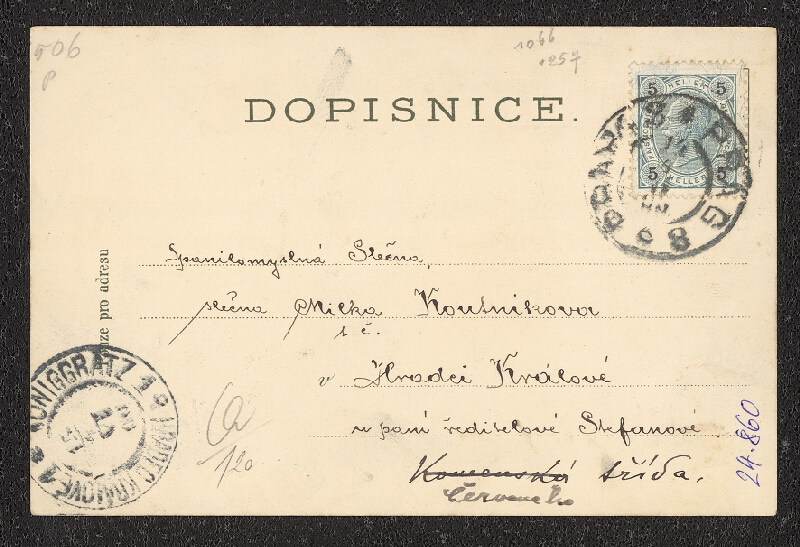 506
P
1066
1257
DOPISNICE.
5 HELLER 5
5 HELLER 5
PRAHA 8 * PRAG 8
Pouze pro adresu
Spanilomyslná Slečna,
slečna Micka Koutnikova
t. č.
v Hradci Králové
u paní ředitelové Stefanové
Komenská třída.
Červené
KÖNIGGRATZ 1 * HRADEC KRÁLOVÉ 1
1/20
24.860